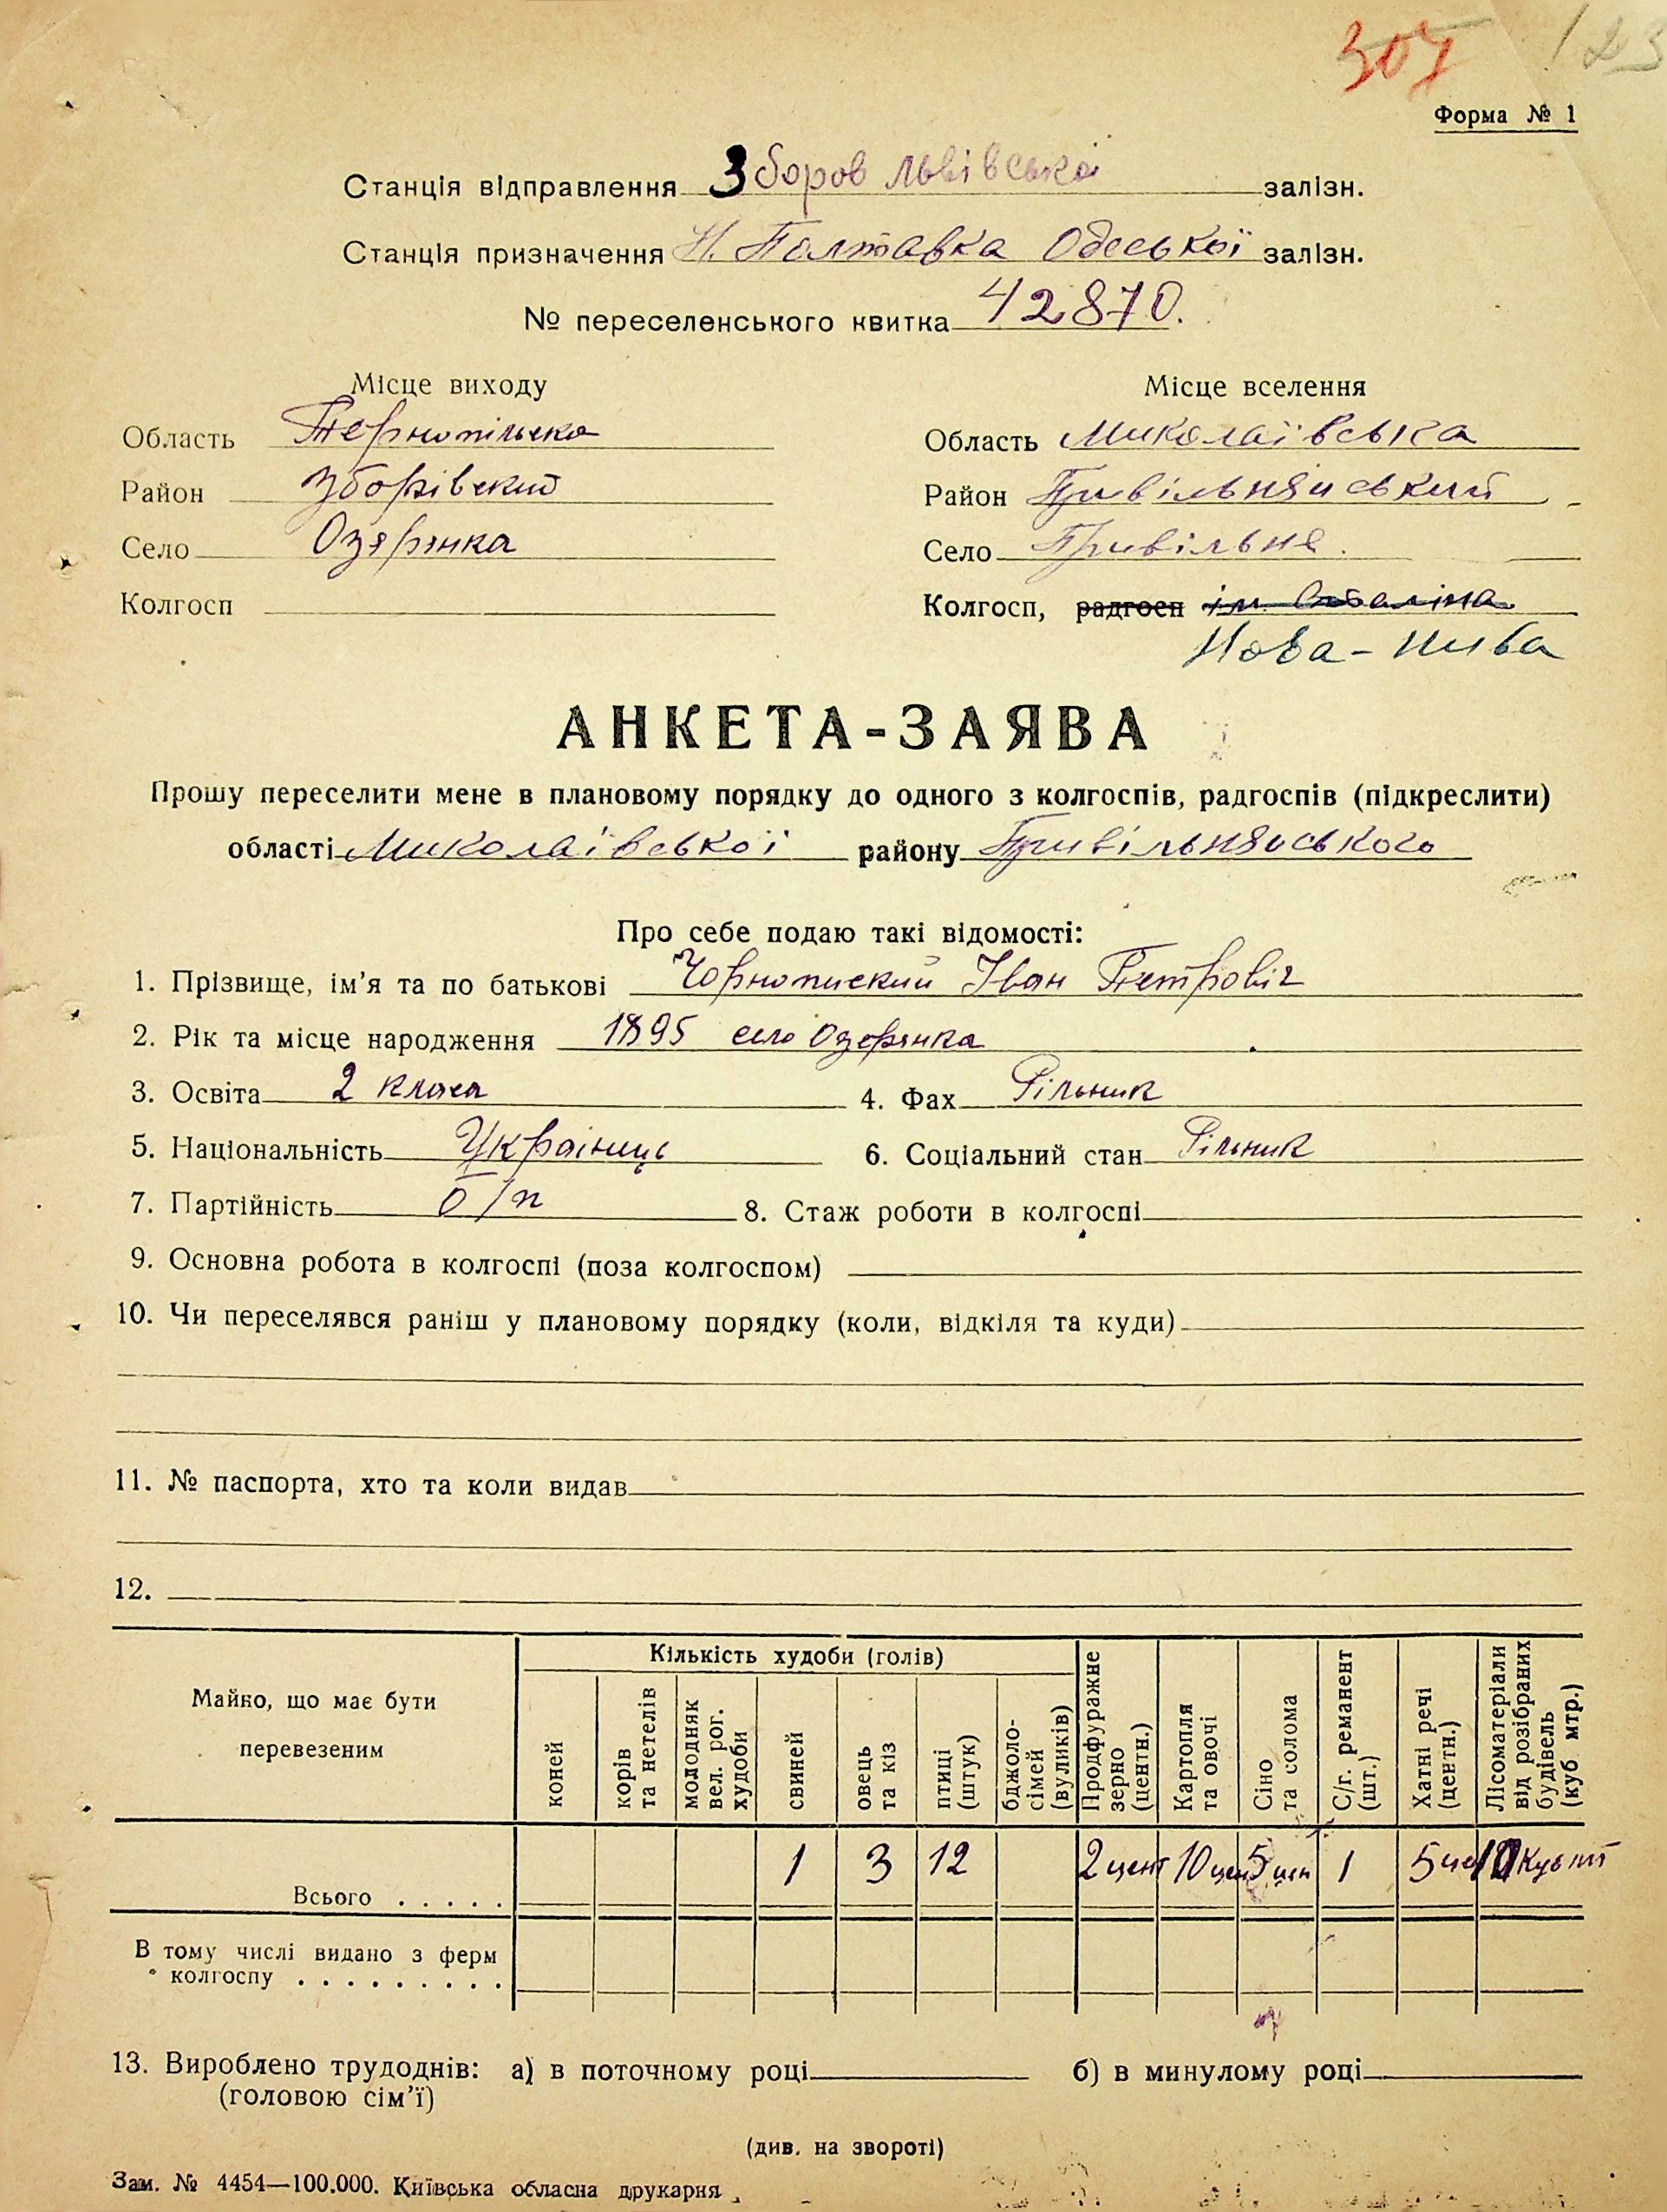 307 123
Форма № 1
Станція відправлення Зборов Львівська залізн.
Станція призначення Н. Полтавка Одеської залізн.
№ переселенського квитка 42870.
Місце виходу Місце вселення
Область Тернопільска Область Миколаївська
Район Зборівский Район Привільнянський
Село Озерянка Село Привільне.
Колгосп Колгосп, радгосп ім. Сталіна
Нова-Нива
АНКЕТА-ЗАЯВА
Прошу переселити мене в плановому порядку до одного з колгоспів, радгоспів (підкреслити)
області Миколаївської району Привільнянського
Про себе подаю такі відомості:
1. Прізвище, ім'я та по батькові Чорнопиский Іван Петровіч
2. Рік та місце народження 1895 село Озерянка
3. Освіта 2 класа 4. Фах Рільник
5. Національність Украінець 6. Соціальний стан Рільник
7. Партійність б/п 8. Стаж роботи в колгоспі
9. Основна робота в колгоспі (поза колгоспом)
10. Чи переселявся раніш у плановому порядку (коли, відкіля та куди)
11. № паспорта, хто та коли видав
12.
Майно, що має бути перевезеним
Кількість худоби (голів)
коней
корів та нетелів
молодняк вел. рог. худоби
свиней
овець та кіз
птиці (штук)
бджоло-сімей (вуликів)
Продфуражне зерно (центн.)
Картопля та овочі
Сіно та солома
С/г. реманент (шт.)
Хатні речі (центн.)
Лісоматеріали від розібраних будівель (куб мтр.)
Всього . . . . . 1 3 12 2 цент 10 цен 5 цен 1 5 цен 10 Куб мт
В тому числі видано з ферм
колгоспу . . . . . . . . .
13. Вироблено трудоднів: а) в поточному році б) в минулому році
(головою сім'ї)
(див. на звороті)
Зам. № 4454—100.000. Київська обласна друкарня